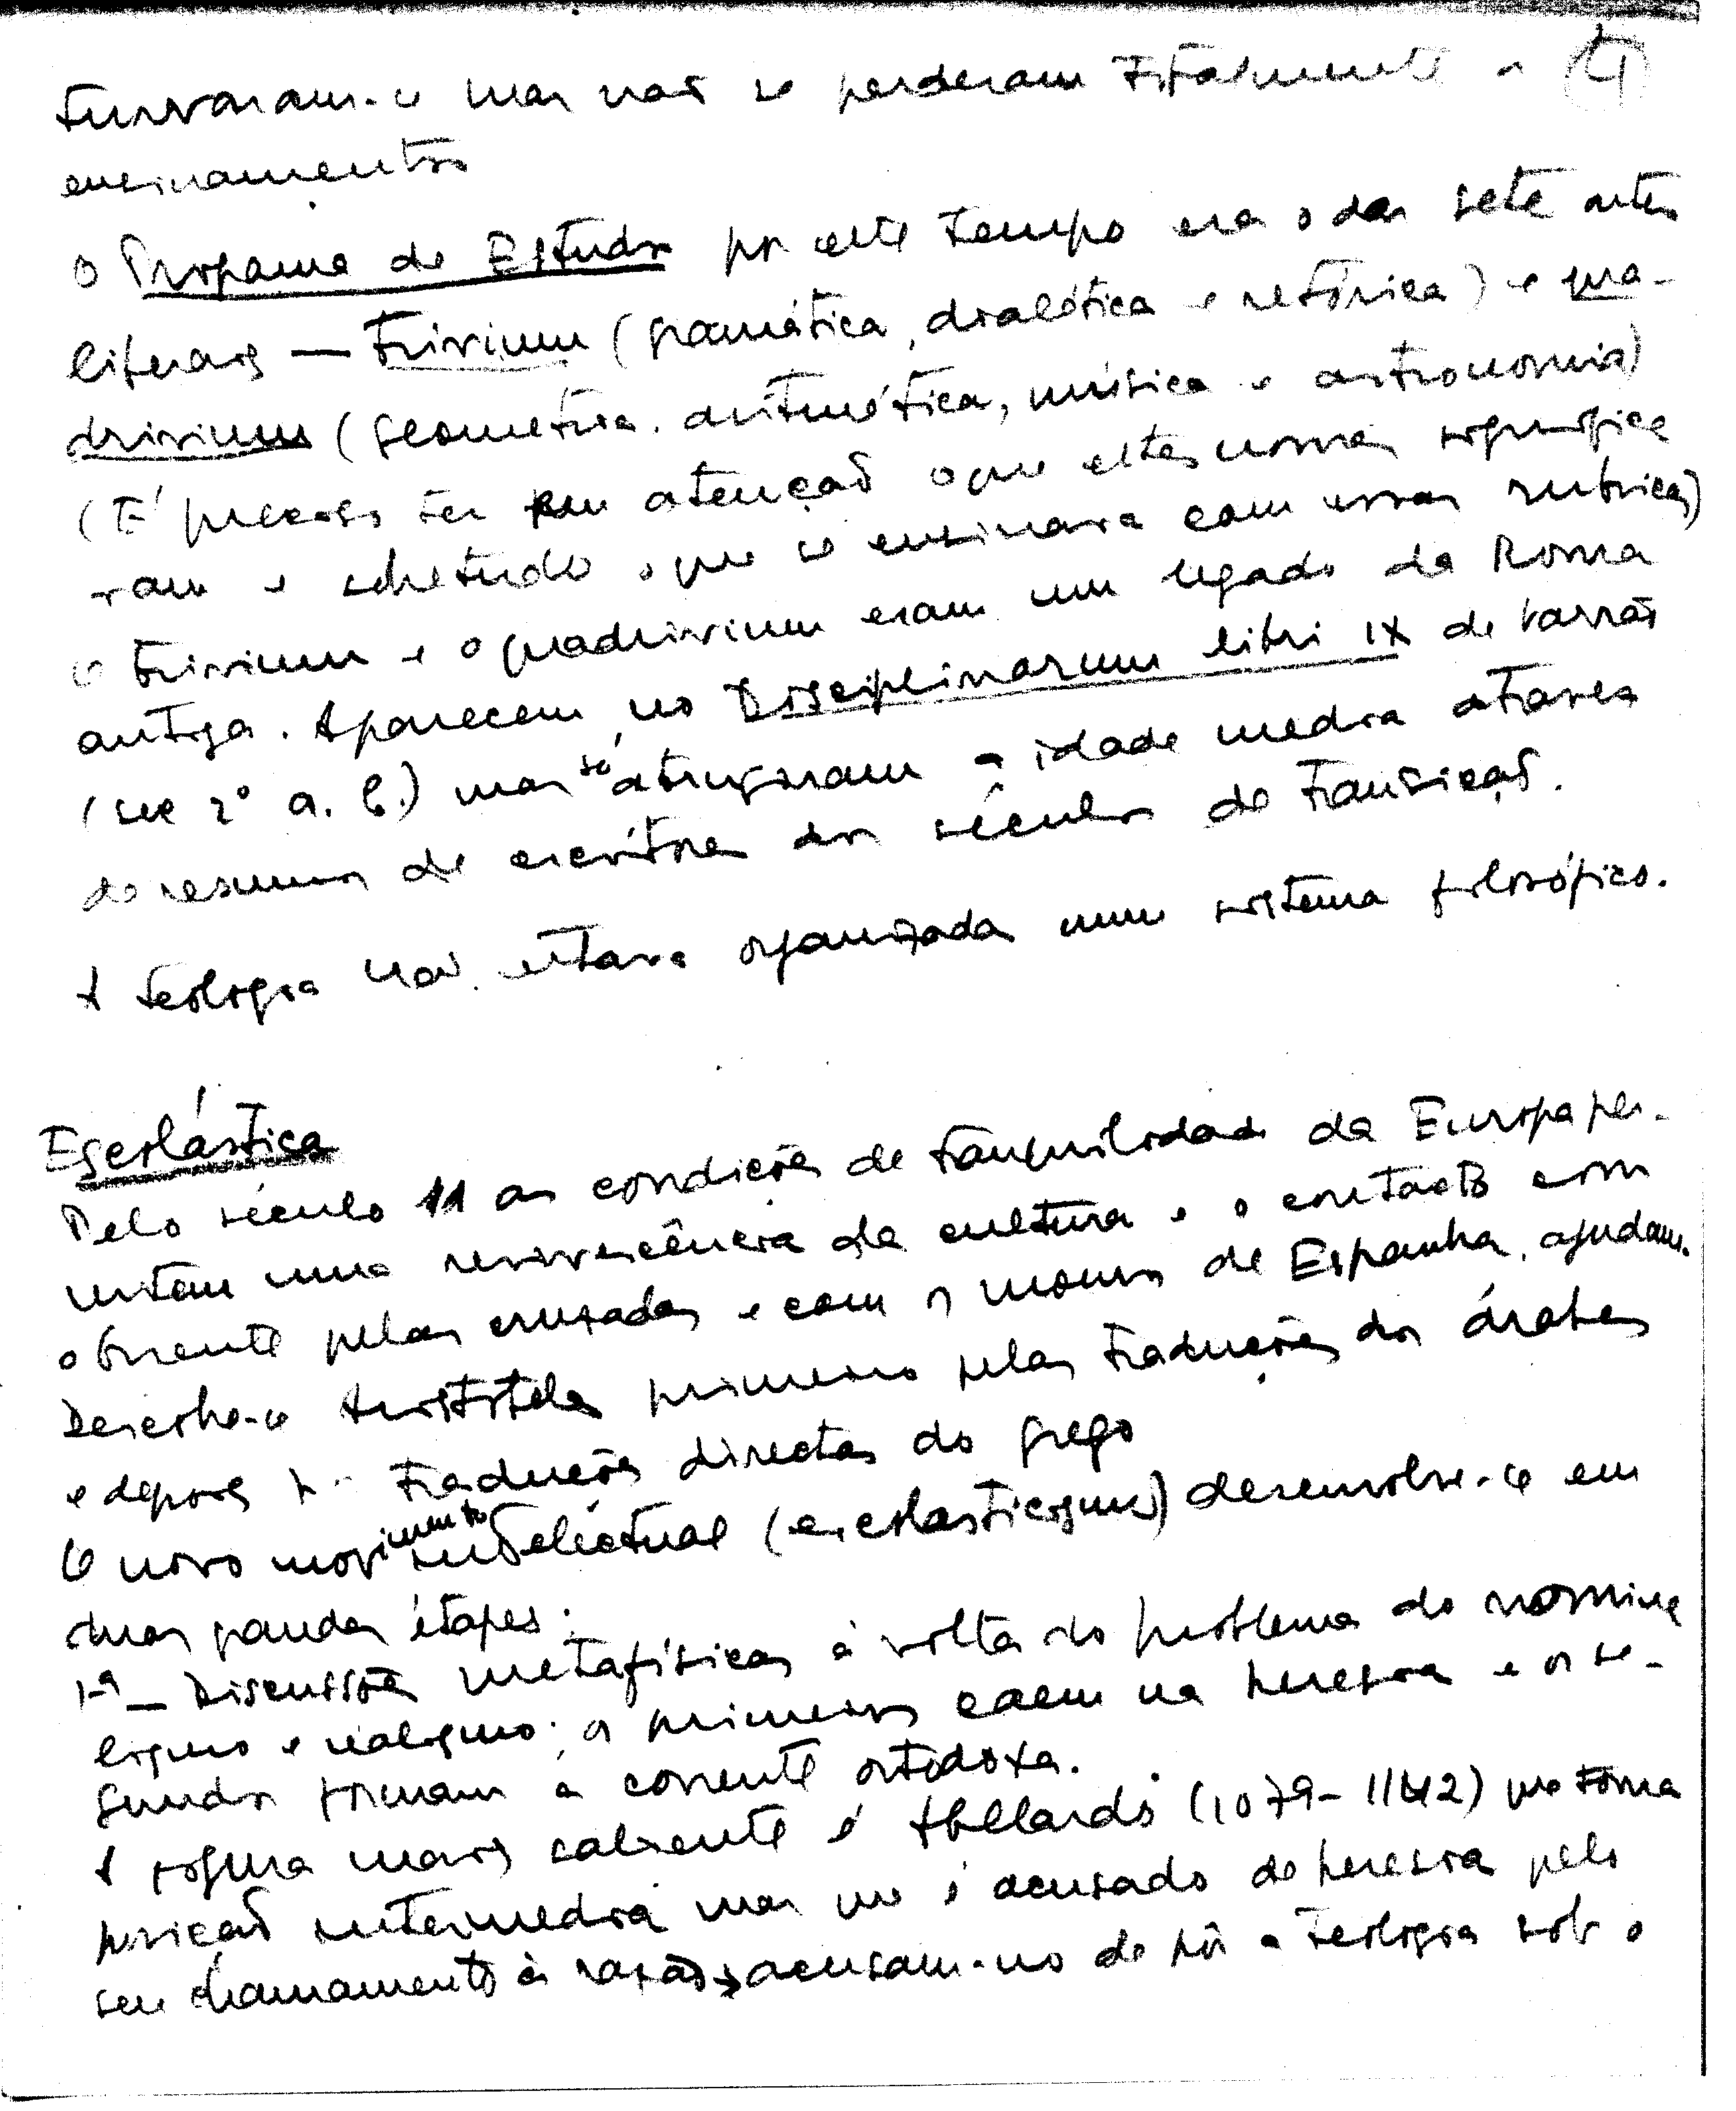 turvaram-se mas não se perderam totalmente os 4
ensinamentos
O Programa de Estudos por este tempo era o das sete artes
liberais — trivium (gramática, dialética e retórica) e qua-
drivium (geometria. aritmética, música e astronomia)
(É preciso ter em atenção o que estes nomes significa
vam e sobretudo o que se ensinava com essas rubricas)
O trivium e o quadrivium eram um legado da Roma
antiga. Aparecem no Disciplinarum libri IX de Varrão
(sec 2º a. C.) mas só atingiram a idade media atraves
de resumos de escritores dos séculos de transição.
A teologia não estava organizada num sistema filosófico.
Escolástica
Pelo século 11 as condições de tranquilidade da Europa per-
mitem uma revivescência da cultura e o contacto com
o oriente pelas cruzadas e com os mouros de Espanha, ajudam.
Descobre-se Aristóteles primeiro pelas traduções dos árabes
e depois por traduções directas do grego
O novo movimento intelectual (escolasticismo) desenvolve-se em
duas grandes étapes:
1ª — Discussões metafísicas à volta do problema do nomina
lismo e realismo; os primeiros caem na heresia e os se-
gundos formam a corrente ortodoxa.
A figura mais saliente é Abelardo (1079-1142) que toma
posição intermedia mas que é acusado de heresia pelo
seu chamamento à razão; acusam-no de pôr a teologia sob o